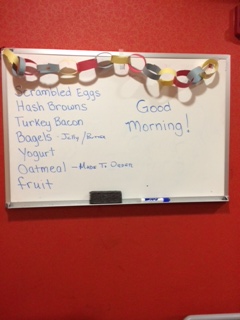 Scrambled Eggs
Hash Browns
Turkey Bacon
Bagels - Jelly / Butter
Yogurt
Oatmeal - Made To Order
fruit
Good
Morning!